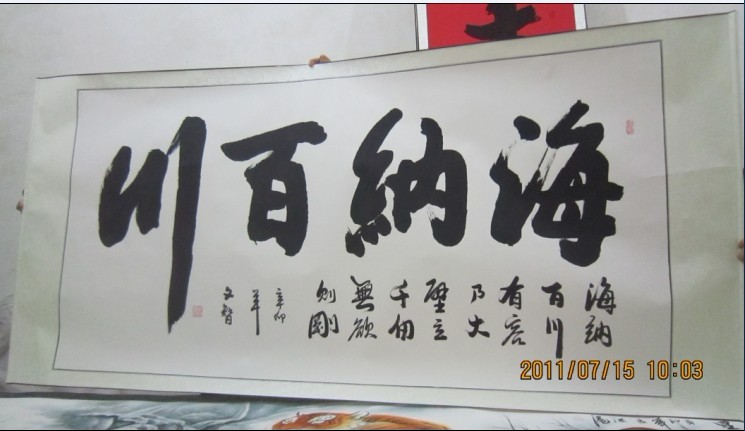 海納百川
海納
百川
有容
乃大
壁立
千仞
無欲
則剛
辛卯
年
文智
2011/07/15 10:03